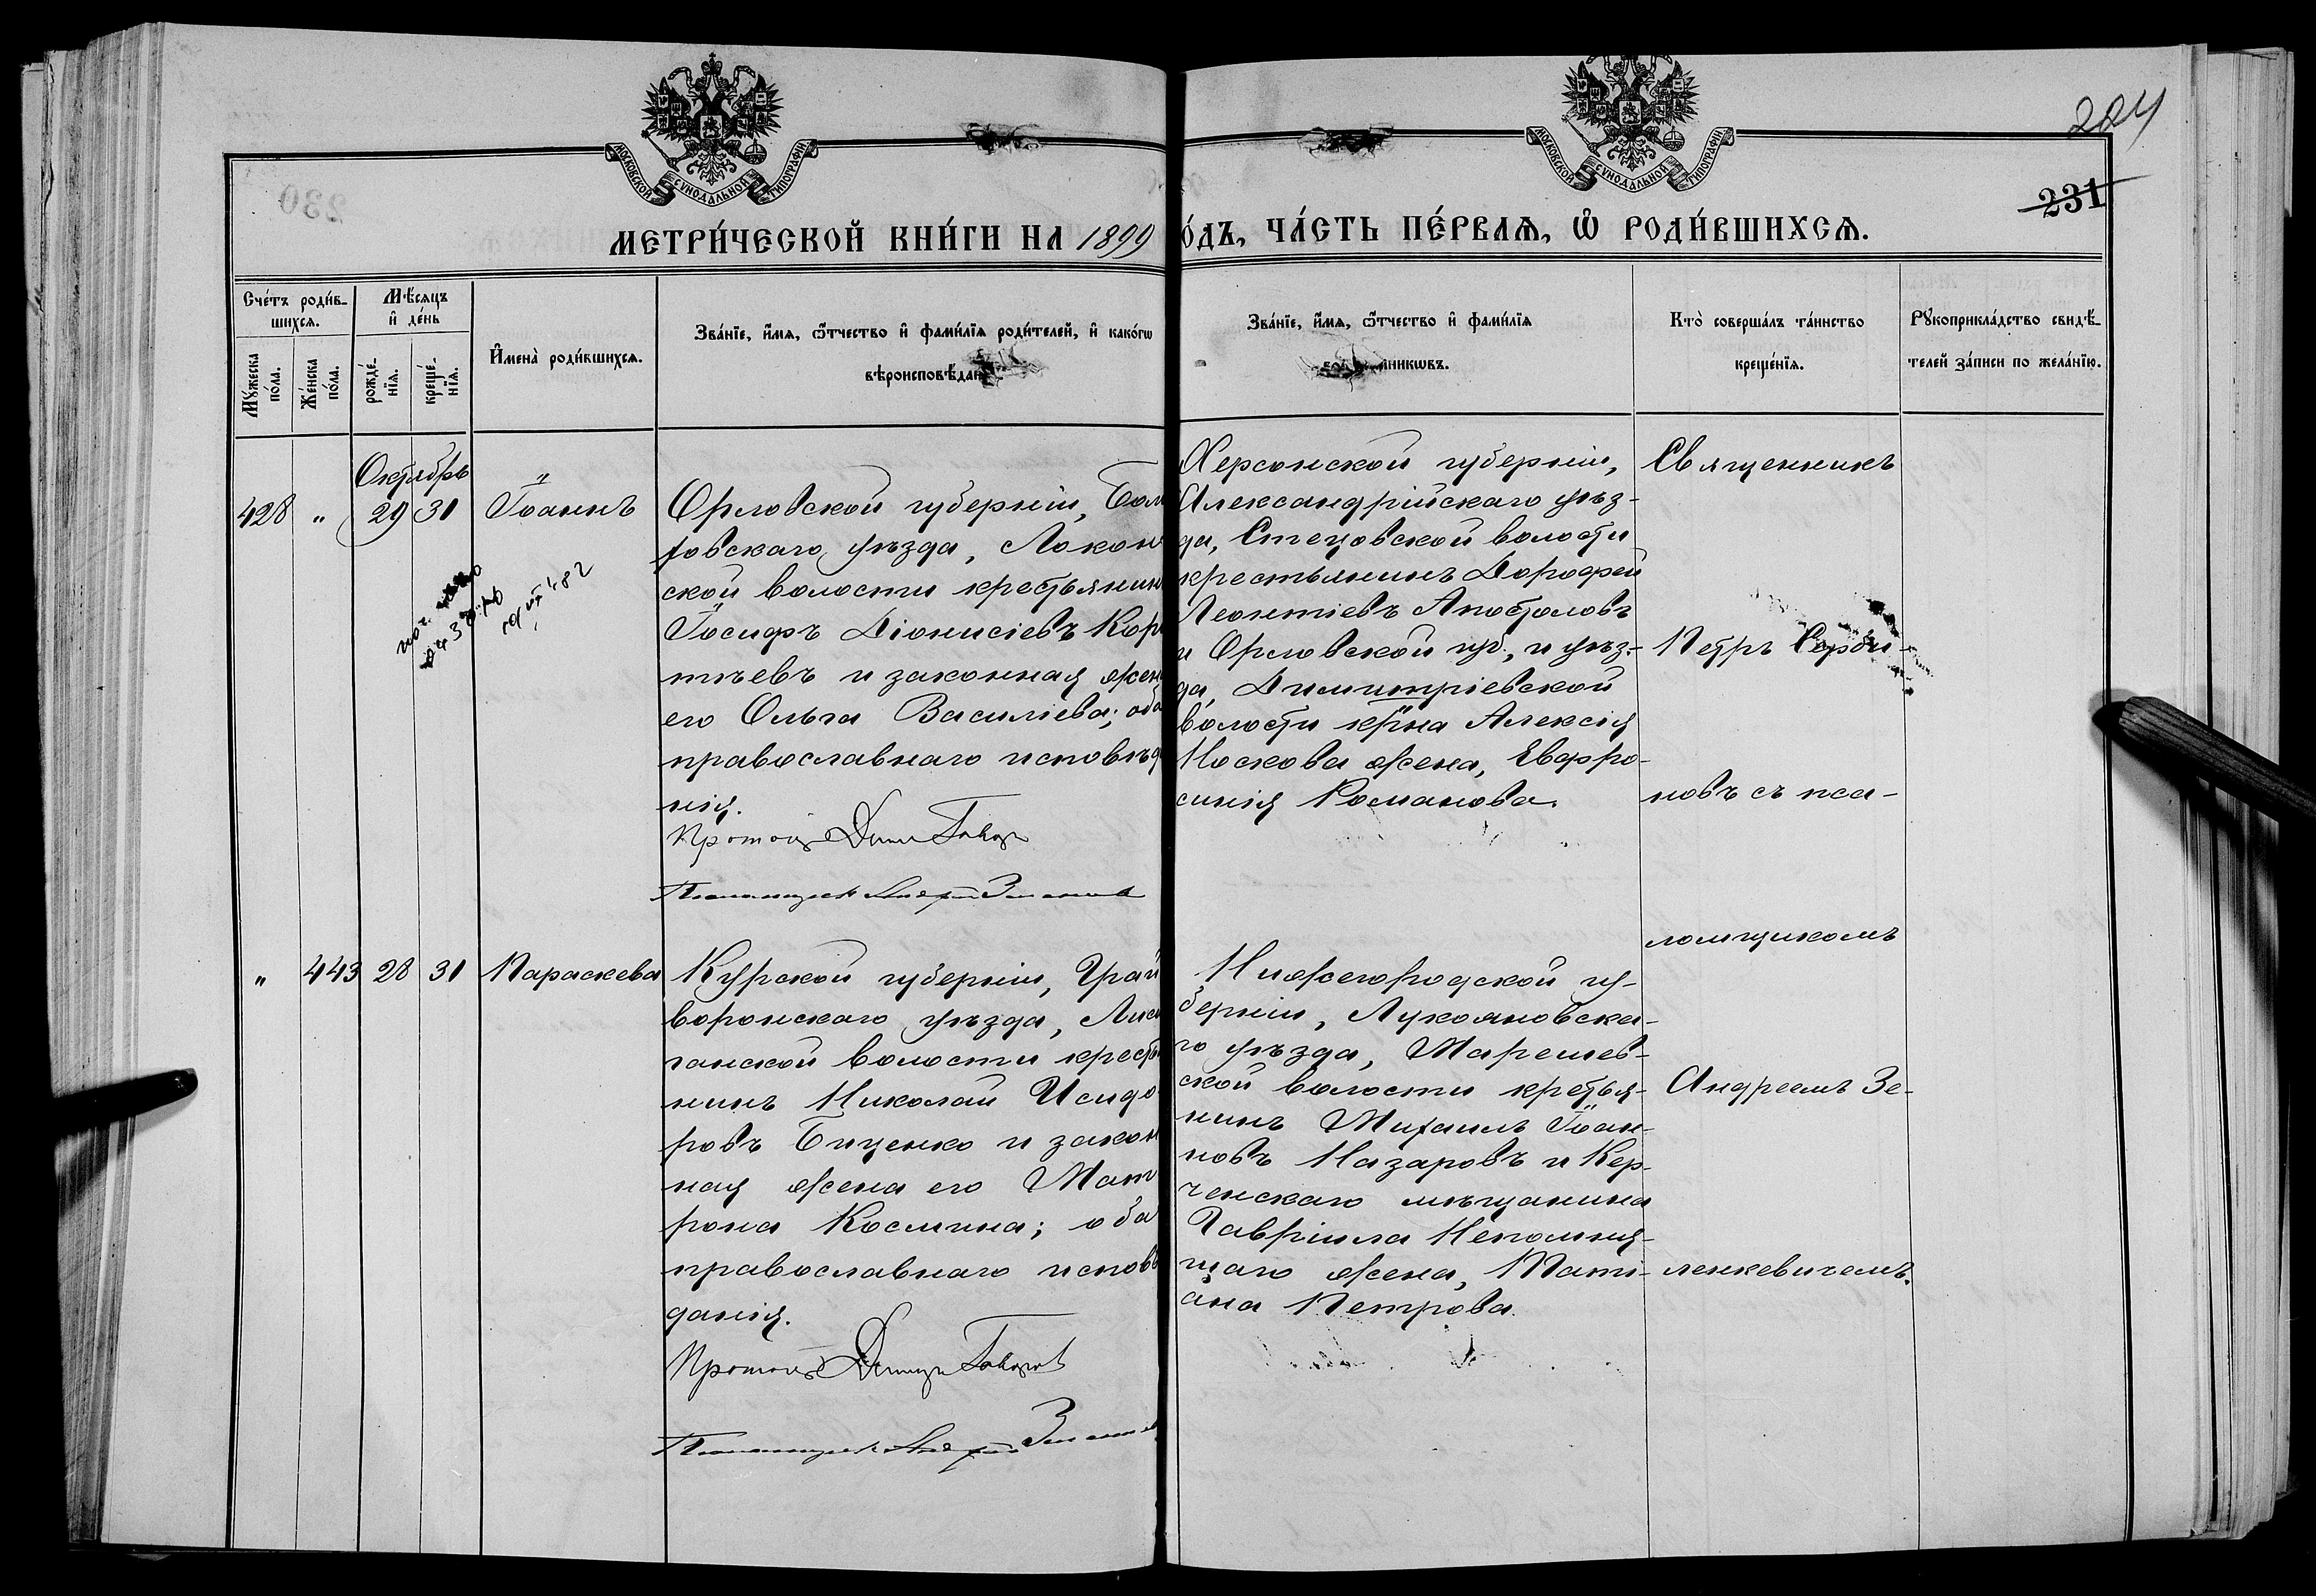 МОСКОВСКОЙ СѴНОДАЛЬНОЙ ТИПОГРАФІИ
МОСКОВСКОЙ СѴНОДАЛЬНОЙ ТИПОГРАФІИ
231
МЕТРИ́ЧЕСКОЙ КНИ́ГИ НА 1899
О́ДЪ, ЧА́СТЬ ПЕ́РВАѦ, Ѡ҆ РОДИ́ВШИХСѦ.
Сче́тъ роди́в-
шихсѧ.
Мꙋ́жеска по́ла.
Же́нска по́ла.
Мѣ́сѧцъ
и҆ де́нь
рожде́-
нїѧ.
креще́-
нїѧ.
И҆мена̀ роди́вшихсѧ.
Зва́нїе, и҆́мѧ, ѻ҆́тчество и҆ фами́лїѧ роди́телей, и҆ како́гѡ
вѣроисповѣ́дан
Зва́нїе, и҆́мѧ, ѻ҆́тчество и҆ фами́лїѧ
никѡвъ.
Кто̀ соверша́лъ та́инство
креще́нїѧ.
Рꙋкоприкла́дство свидѣ́-
телей за́писи по жела́нїю.
Октябрь
428 " 29 31 Іоаннъ
Орловской губерніи, Бол
ховскаго уѣзда, Локон
ской волости крестьянин
Іосифъ Діонисіевъ Кор
тѣевъ и законная жен
его Ольга Василіева; оба
православнаго исповѣд
нія.
Протоіер
Псаломщикъ Андрей
Херсонской губерніи,
Александрійскаго уѣз-
да, Стецовской волости
крестьянинъ Дорофей
Леонтіевъ Апостоловъ
и Орловской губ., и уѣз-
да, Димитріевской
волости кр-на Алексія
Москова жена, Евфро-
синія Романова.
Священникъ
Петръ Серби-
новъ съ пса-
ломщикомъ
Андреемъ Зе-
ленкевичемъ.
" 443 28 31 Параскева
Курской губерніи, Грай
воронскаго уѣзда, Лиси
чанской волости кресть
нинъ Николай Исидо
ровъ Биценко и закон
ная жена его Мат
рона Космина; оба
православнаго исповѣ
данія.
Протоіер
Псаломщикъ Андрей
Нижегородской гу-
берніи, Лукояновска-
го уѣзда, Маресев-
ской волости крестья-
нинъ Михаилъ Іоан-
новъ Назаровъ и Кер-
ченскаго мѣщанина
Гавріила Непомня-
щаго жена, Таті-
ана Петрова.